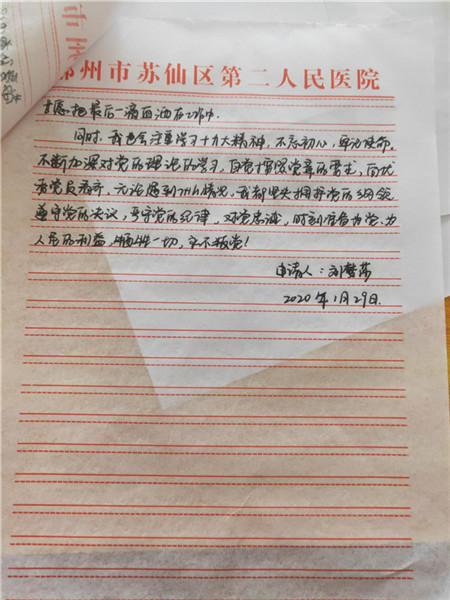 州市苏仙区第二人民医院
愿把最后一滴血洒在工作中.
同时,我也会注重学习十九大精神,不忘初心,牢记使命.
不断加深对党的理论的学习,自觉按照党章的要求,向优
秀党员看齐.无论遇到什么情况,我都坚决拥护党的纲领
遵守党的决议,严守党的纪律,对党忠诚,时刻准备为党、为
人民的利益,牺牲一切,永不叛党!
申请人:刘
2020年1月29日.